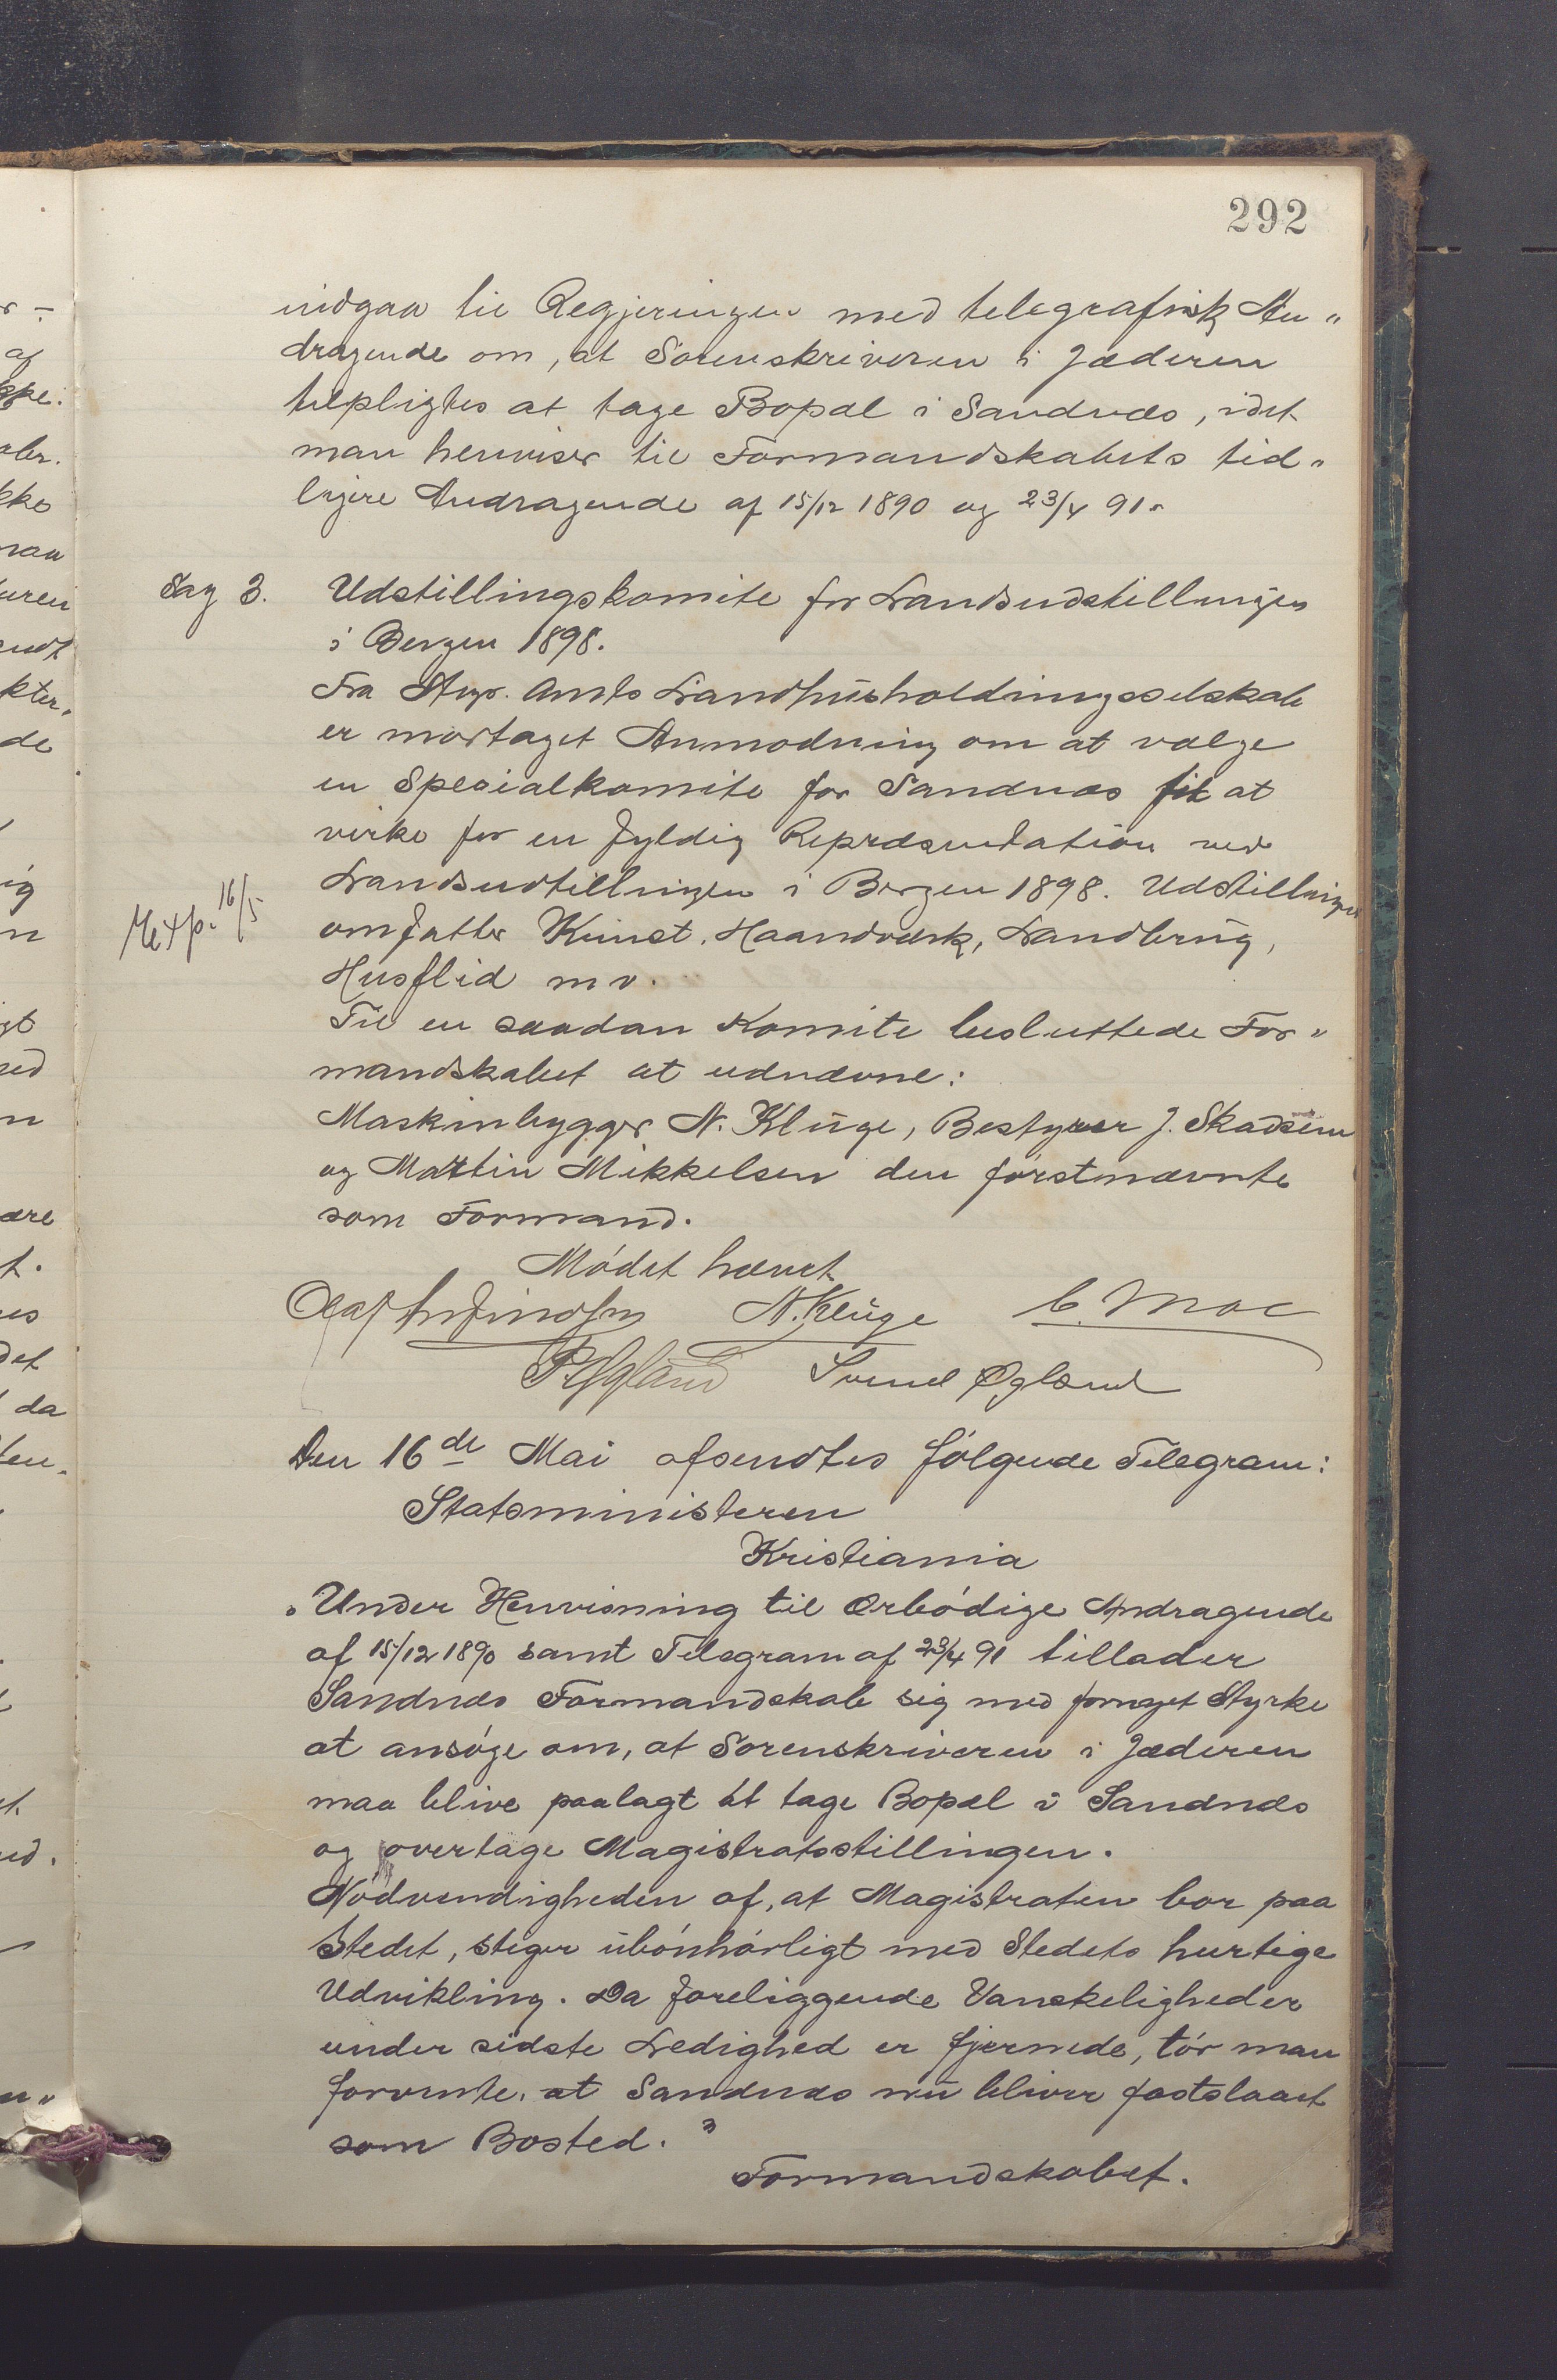 292
indgaa til Regjeringen med telegrafisk An„
dragende om, at Sorenskriveren i Jæderen
tilpligtes at tage Bopæl i Sandnæs, idet
man henviser til Formandskabets tid„
ligere Andragende af 15/12 1890 og 23/4 91.
Sag 3. Udstillingskomite for Landsudstillingen
i Bergen 1898.
Fra Stvgr. Amts Landhusholdningsselskab
er mottaget Anmodning om at vælge
en Specialkomite for Sandnæs til at
virke for en fyldig Repræsentation ved
Landsudtillingen i Bergen 1898. Udstillingen
Exp. 16/5
omfatter Kunst, Haandværk, Landbrug,
Husflid m v.
Til en saadan Komite besluttede For„
mandskabet at udnævne:
Maskinbygger N. Kluge, Bestyrer J. Skadsem
og Martin Mikkelsen den førstnævnte
som Formand.
Mødet hævet
N. Kluge C. Moe
Svend Øgland
Den 16de Mai afsendtes følgende Telegram:
Statsministeren
Kristiania
„Under Henvisning til ærbødige Andragende
af 15/12 1890 samt Telegram af 23/4 91 tillader
Sandnæs Formandskab sig med fornyet Styrke
at ansøge om, at Sorenskriveren i Jæderen
maa blive paalagt at tage Bopæl i Sandnæs
og overtage Magistratsstillingen.
Nødvendigheden af, at Magistraten bor paa
Stedet, stiger ubønhørligt med Stedets hurtige
Udvikling. Da foreliggende Vanskeligheder
under sidste Ledighed er fjernede, tør man
forvente, at Sandnæs nu bliver fastslaaet
som Bosted."
Formandskabet.